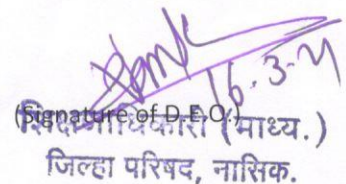 16-3-21
(Signature of D.E.O.)
शिक्षणाधिकारी (माध्य.)
जिल्हा परिषद, नासिक.